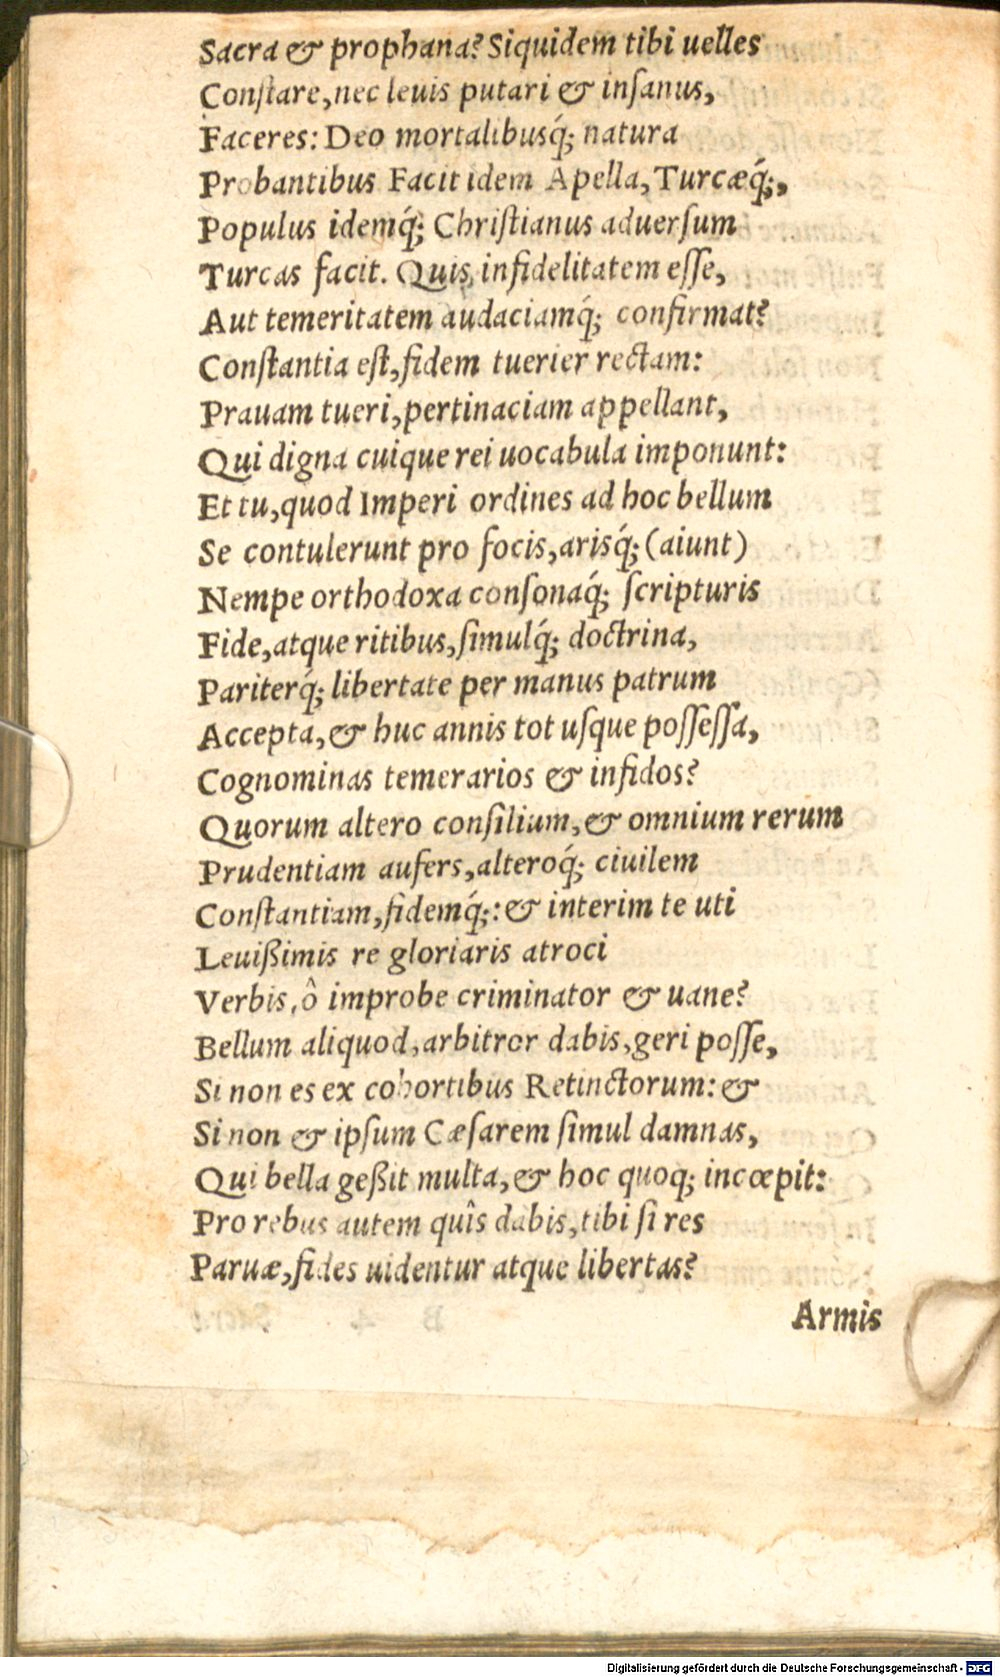 Sacra & prophana? Siquidem tibi uelles
Conſtare, nec leuis putari & inſanus,
Faceres: Deo mortalibusq́; natura
Probantibus Facit idem Apella, Turcæq́;,
Populus idemq́; Chriſtianus aduerſum
Turcas facit. Quis, infidelitatem eſſe,
Aut temeritatem audaciamq́; confirmat?
Conſtantia eſt, fidem tuerier rectam:
Prauam tueri, pertinaciam appellant,
Qui digna cuique rei uocabula imponunt:
Et tu, quod Imperi ordines ad hoc bellum
Se contulerunt pro focis, arisq́; (aiunt)
Nempe orthodoxa conſonaq́; ſcripturis
Fide, atque ritibus, ſimulq́; doctrina,
Pariterq́; libertate per manus patrum
Accepta, & huc annis tot uſque poſſeſſa,
Cognominas temerarios & infidos?
Quorum altero conſilium, & omnium rerum
Prudentiam aufers, alteroq́; ciuilem
Conſtantiam, fidemq́;: & interim te uti
Leuißimis re gloriaris atroci
Verbis, ô improbe criminator & uane?
Bellum aliquod, arbitror dabis, geri poſſe,
Si non es ex cohortibus Retinctorum: &
Si non & ipſum Cæſarem ſimul damnas,
Qui bella geßit multa, & hoc quoq; incœpit:
Pro rebus autem quîs dabis, tibi ſi res
Paruæ, fides uidentur atque libertas?
Armis
Digitalisierung gefördert durch die Deutsche Forschungsgemeinschaft - DFG